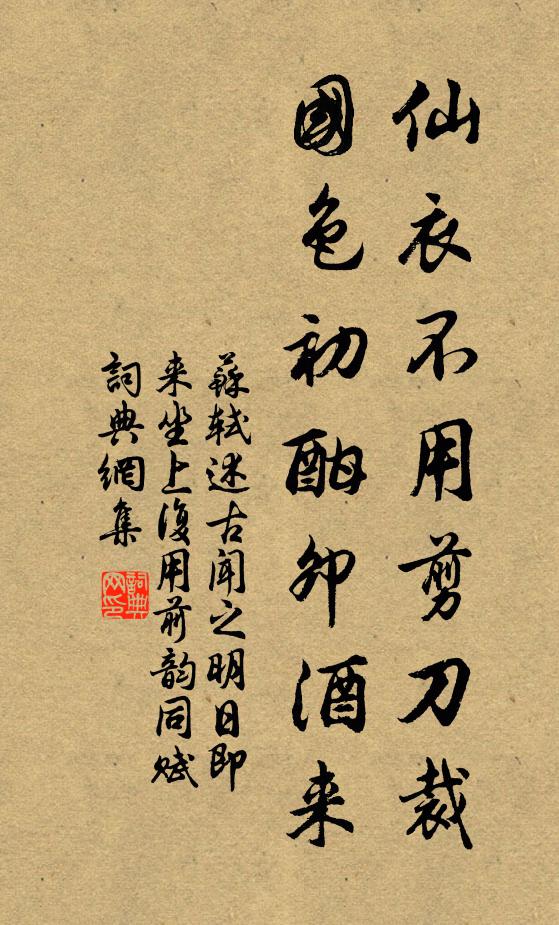 仙衣不用剪刀裁
國色初酣卯酒来
蘇軾述古聞之明日即
来坐上復用前韵同赋
詞典網集
詞典网印